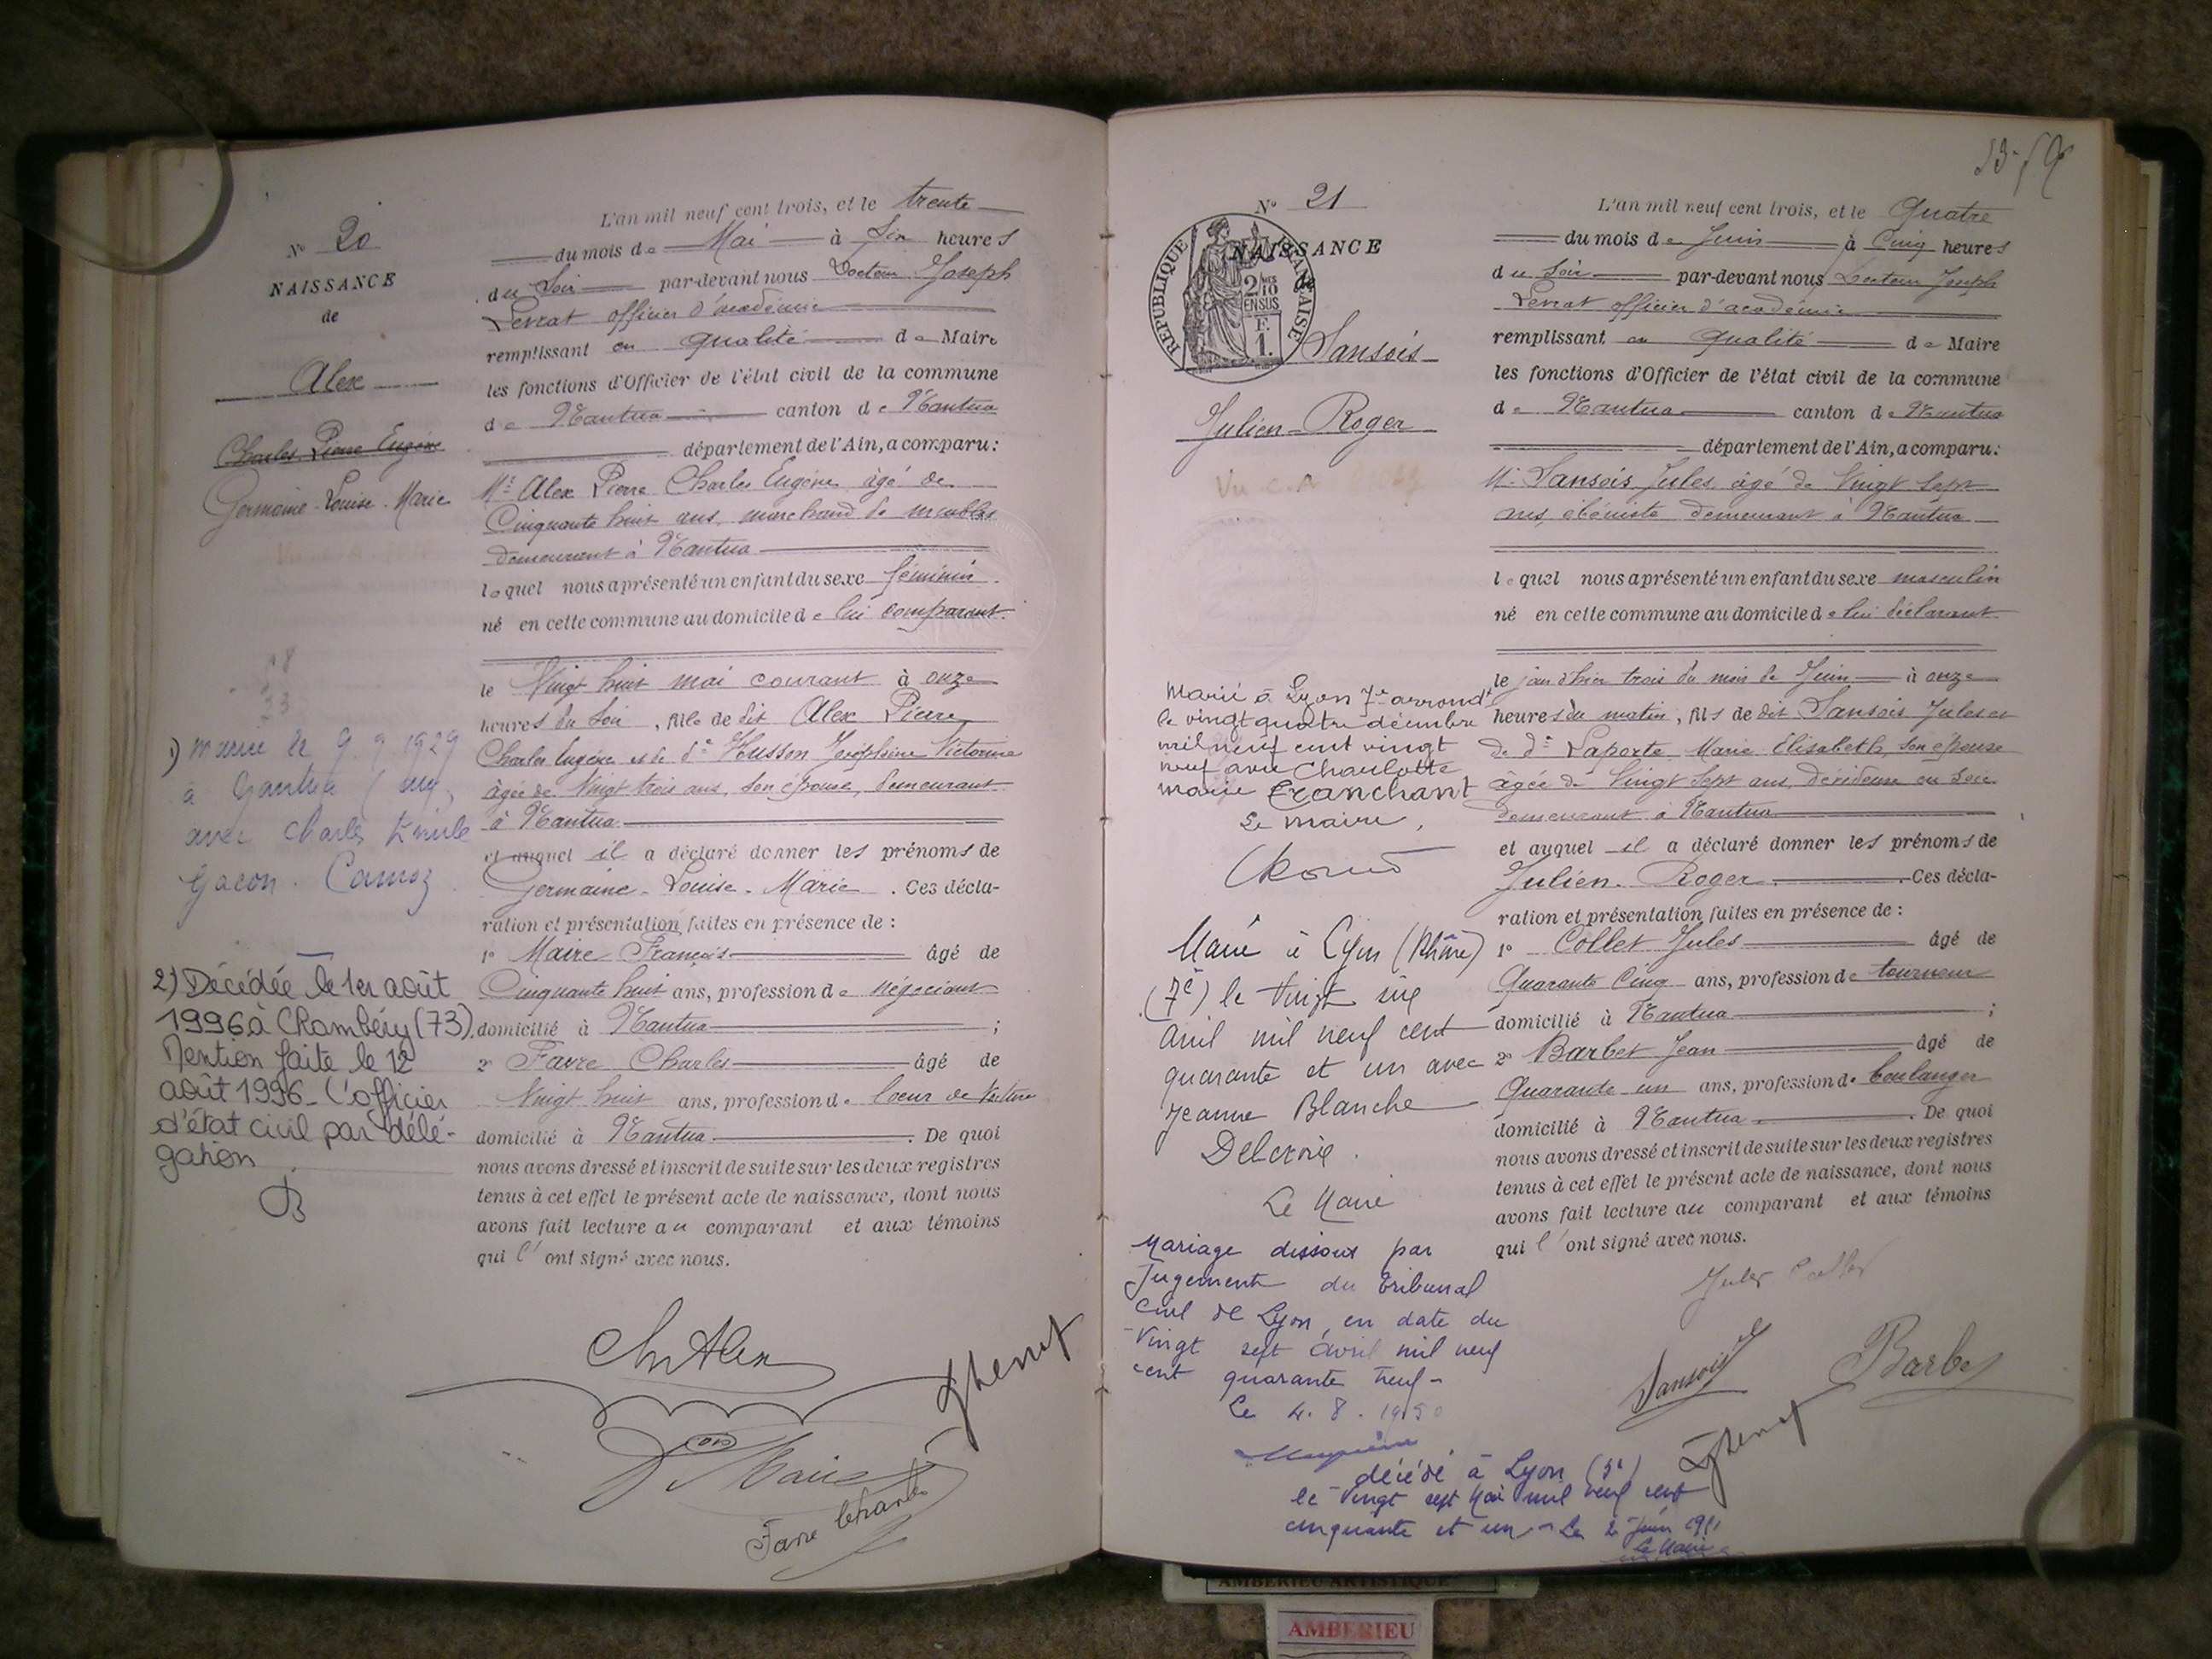 N° 20
NAISSANCE
de
Alex
Charles Pierre Eugène
Germaine-Louise-Marie
1) mariée le 9.9.1929
à
avec Charles Emile
Gacon. Camoz
2) Décédée le 1er août
1996 à Chambéry (73).
Mention faite le 12
août 1996_ L'officier
d'état civil par délé-
gation
L'an mil neuf cent trois, et le trente
du mois de Mai à six heures
du soir par-devant nous Docteur Joseph
Levrat officier d'académie
remplissant en qualité de Maire
les fonctions d'Officier de l'état civil de la commune
de Nantua canton de Nantua
département de l'Ain, a comparu:
Mr Alex Pierre Charles Eugène âgé de
Cinquante huit ans, marchand de meubles
demeurant à Nantua
lequel nous a présenté un enfant du sexe féminin
né en cette commune au domicile de lui comparant.
le Vingt huit mai courant à onze
heures du soir, fille de dit Alex Pierre
Charles Eugène et de de Husson Joséphine Victorine
âgée de Vingt trois ans, son épouse, demeurant
à Nantua
et auquel il a déclaré donner les prénoms de
Germaine-Louise-Marie. Ces décla-
ration et présentation faites en présence de :
1° Maire François âgé de
Cinquante huit ans, profession de négociant
domicilié à Nantua ;
2° Favre Charles âgé de
Vingt huit ans, profession de loueur de voiture
domicilié à Nantua. De quoi
nous avons dressé et inscrit de suite sur les deux registres
tenus à cet effet le présent acte de naissance, dont nous
avons fait lecture au comparant et aux témoins
qui l'ont signé avec nous.
Ch Alex
Maire
Favre Charles
13-
N° 21
NAISSANCE
de
REPUBLIQUE FRANÇAISE
2/10 EN SUS
F.
1.
Sansois
Julien-Roger
Marié à Lyon 7e arrondt
le vingt quatre décembre
mil neuf cent vingt
neuf avec Charlotte
marie Franchant
Le maire,
Marié à Lyon (Rhône)
(7e) le vingt six
avril mil neuf cent
quarante et un avec
Jeanne Blanche
Delcroix.
Le Maire
Mariage dissous par
Jugement du tribunal
civil de Lyon, en date du
Vingt sept avril mil neuf
cent quarante neuf-
Le 4.8.1950
décédé à Lyon (5e)
le vingt sept Mai mil neuf cent
cinquante et un - Le 2 Juin 1951
Le Maire
L'an mil neuf cent trois, et le Quatre
du mois de Juin à Cinq heures
du Soir par-devant nous Docteur Joseph
Levrat officier d'académie
remplissant en qualité de Maire
les fonctions d'Officier de l'état civil de la commune
de Nantua canton de Nantua
département de l'Ain, a comparu:
Mr Sansois Jules âgé de Vingt sept
ans, ébéniste demeurant à Nantua
lequel nous a présenté un enfant du sexe masculin
né en cette commune au domicile de lui déclarant
le jour d'hier trois du mois de Juin à onze
heures du matin, fils de dit Sansois Jules et
de de Laporte Marie Elisabeth, son épouse
âgée de Vingt sept ans, dévideuse en soie
demeurant à Nantua
et auquel il a déclaré donner les prénoms de
Julien-Roger. Ces décla-
ration et présentation faites en présence de :
1° Collet Jules âgé de
Quarante Cinq ans, profession de tourneur
domicilié à Nantua ;
2° Barbet Jean âgé de
Quarante un ans, profession de boulanger
domicilié à Nantua. De quoi
nous avons dressé et inscrit de suite sur les deux registres
tenus à cet effet le présent acte de naissance, dont nous
avons fait lecture au comparant et aux témoins
qui l'ont signé avec nous.
Jules Collet
Sansois J
Barbet
AMBERIEU ARTISTIQUE
AMBERIEU